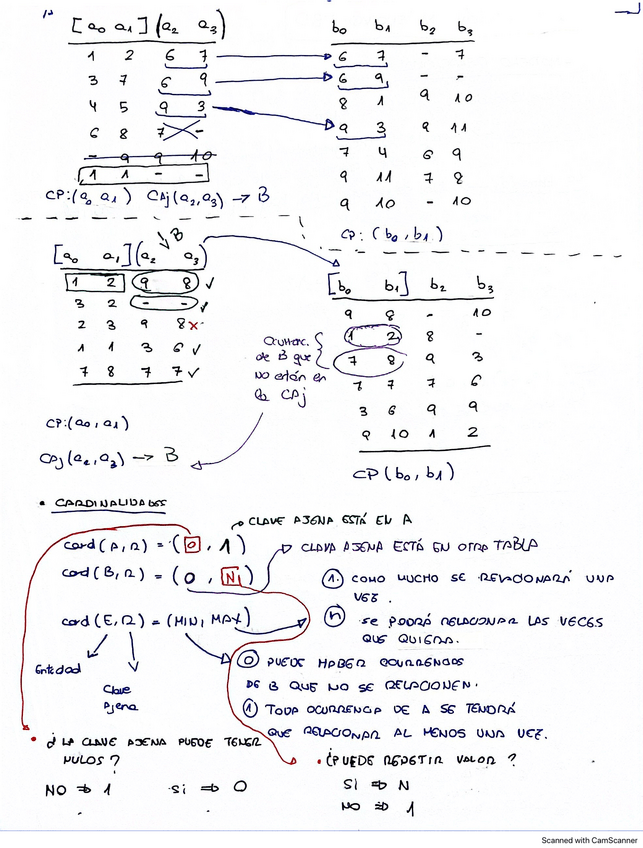 [a₀ a₁] (a₂ a₃)
1 2 6 7
3 7 6 9
4 5 9 3
6 8 7 -
- 9 9 10
1 1 - -
CP:(a₀ a₁) CAj(a₂,a₃) → B
b₀ b₁ b₂ b₃
6 7 - 7
6 9 - -
8 1 9 10
9 3 9 11
7 4 6 9
9 11 7 8
9 10 - 10
CP: (b₀, b₁)
B
[a₀ a₁] (a₂ a₃)
1 2 9 8 ✓
3 2 - - ✓
2 3 9 8 x
1 1 3 6 ✓
7 8 7 7 ✓
CP:(a₀, a₁)
CAj(a₂, a₃) → B
ocurrenc.
de B que
no están en
la CAj
[b₀ b₁] b₂ b₃
9 8 - 10
1 2 8 -
7 8 9 3
7 7 7 6
3 6 9 9
9 10 1 2
CP (b₀, b₁)
• CARDINALIDADES
→ CLAVE AJENA ESTÁ EN A
card(A,R) = (0, 1)
→ CLAVE AJENA ESTÁ EN OTRA TABLA
card(B,R) = (0, N)
① COMO MUCHO SE RELACIONARÁ UNA
VEZ.
card(E,R) = (MIN, MAX)
ⓝ SE PODRÁ RELACIONAR LAS VECES
QUE QUIERA.
Entidad
Clave
Ajena
⓪ PUEDE HABER OCURRENCIAS
DE B QUE NO SE RELACIONEN.
① TODA OCURRENCIA DE A SE TENDRÁ
QUE RELACIONAR AL MENOS UNA VEZ.
• ¿LA CLAVE AJENA PUEDE TENER
NULOS?
NO ⇒ 1 SI ⇒ 0
• ¿PUEDE REPETIR VALOR?
SI ⇒ N
NO ⇒ 1
Scanned with CamScanner